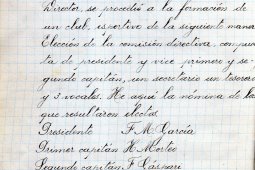 Director, se procedió a la formación de
un club, isportivo de la siguiente manera
Elección de la comisión directiva, compues
ta de presidente y vice primero y se-
gundo capitán, un secretario un tesorero
y 3 vocales. He aquí la nómina de los
que resultaron electos.
Presidente F. M. García
Primer capitán H. Morteo
Segundo capitán F. Gáspari